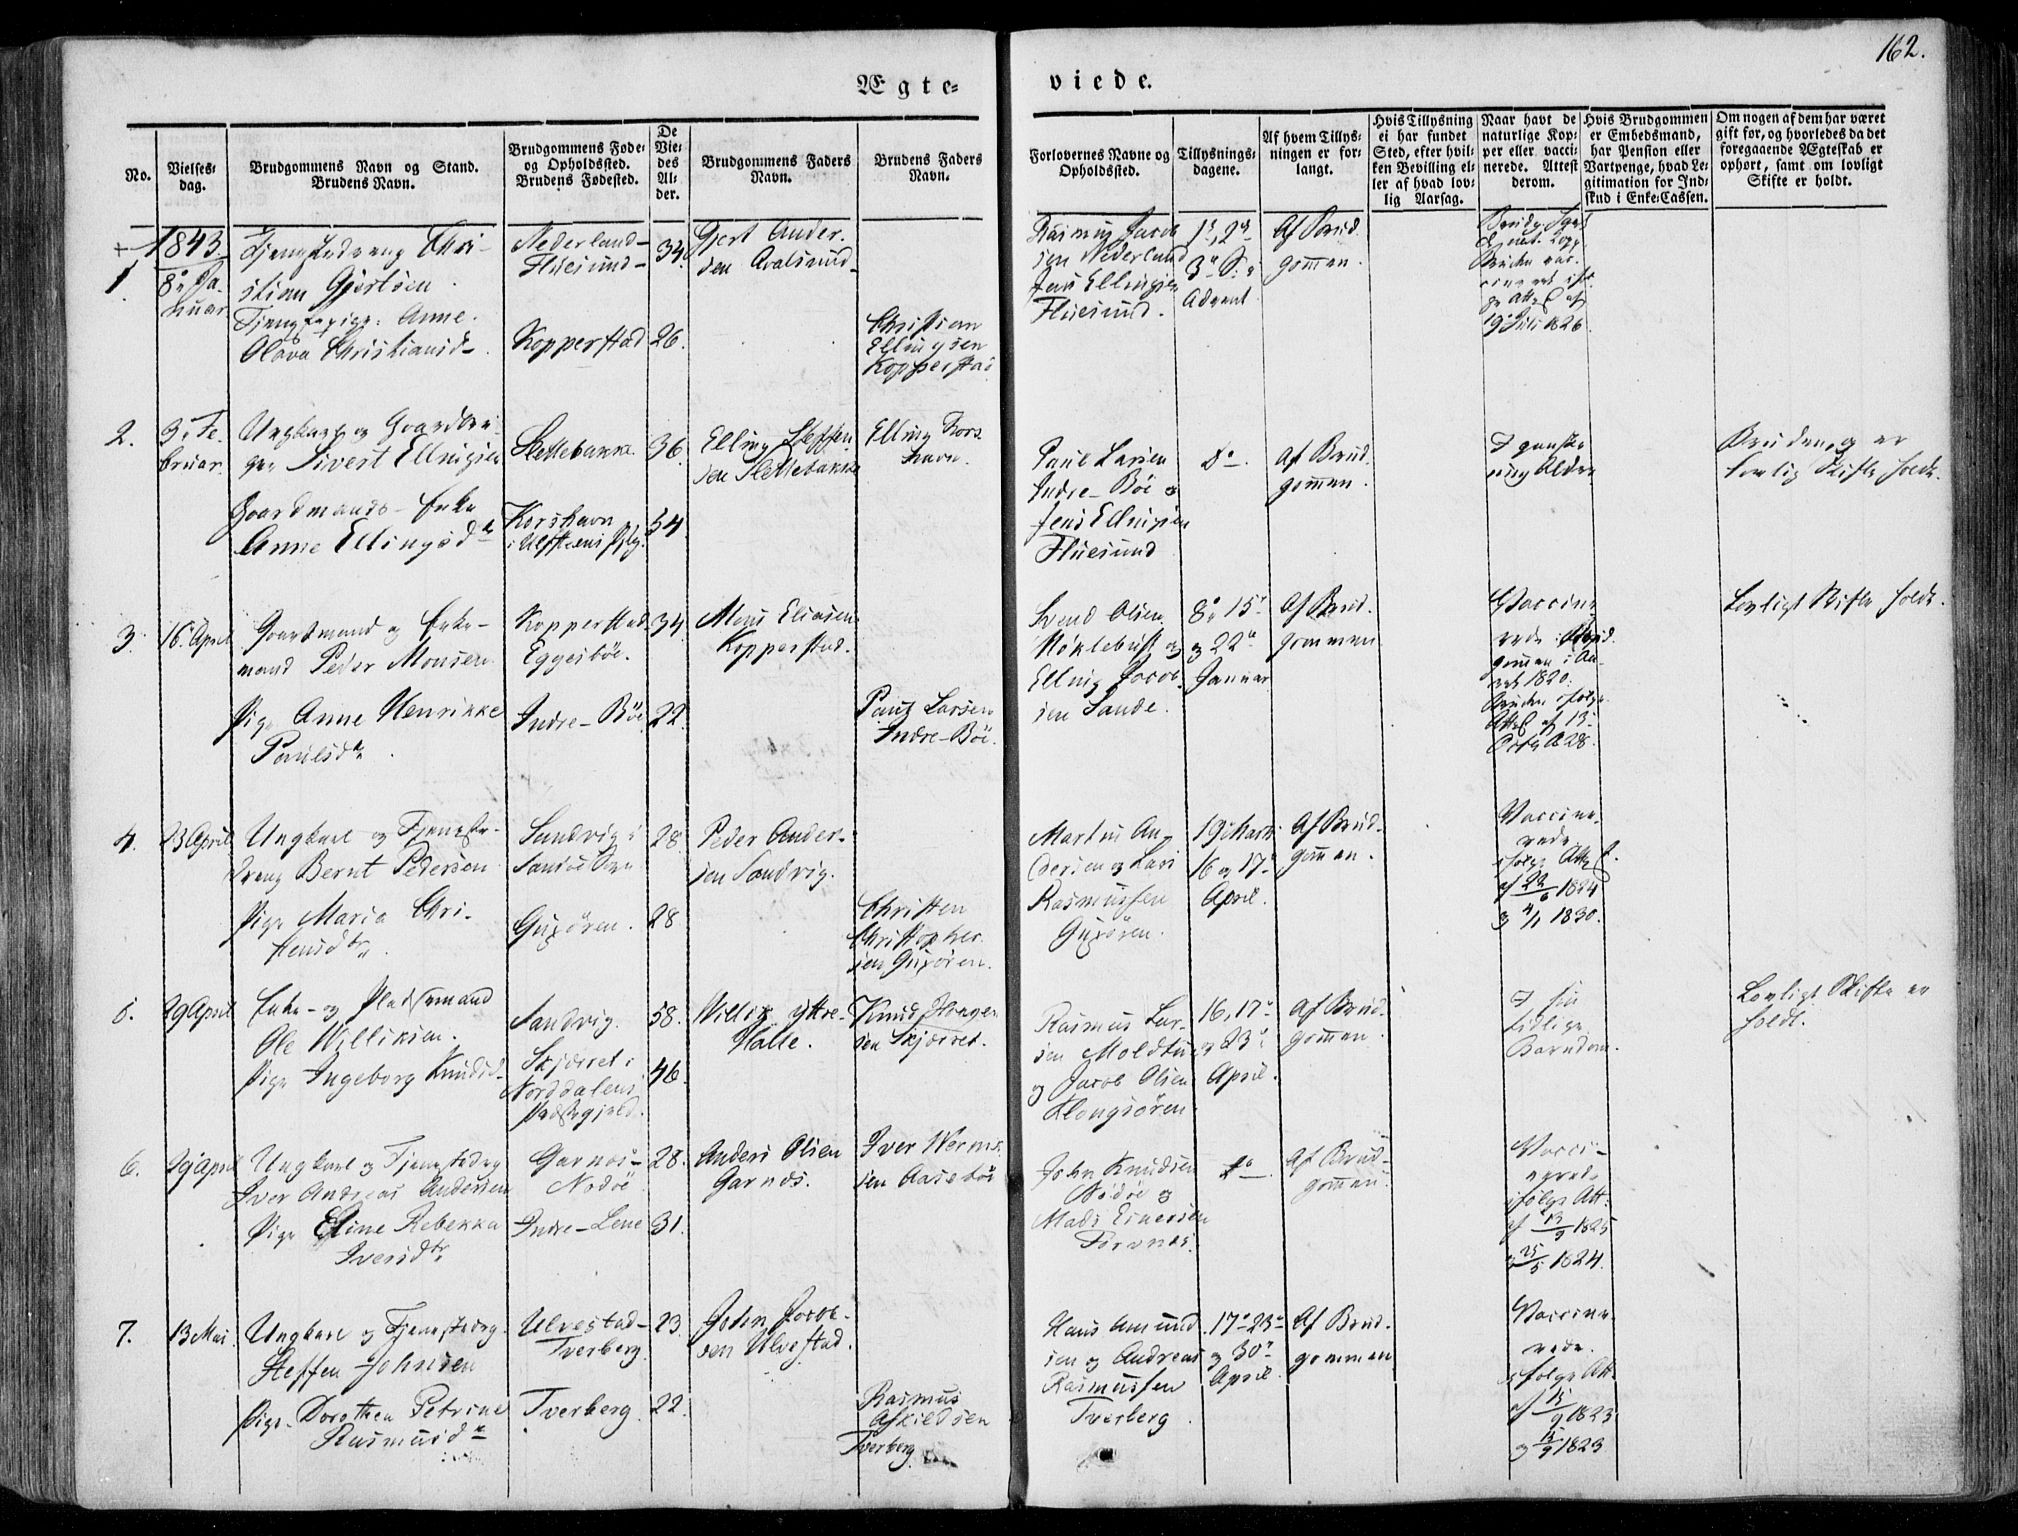 162.
Ægte-
viede.
No.
Vielses-
dag.
Brudgommens Navn og Stand.
Brudens Navn.
Brudgommens Føde-
og Opholdssted.
Brudens Fødested.
De
Vie-
des
Al-
der.
Brudgommens Faders
Navn.
Brudens Faders
Navn.
Forlovernes Navne og
Opholdssted.
Tillysnings-
dagene.
Af hvem Tillys-
ningen er for-
langt.
Hvis Tillysning
ei har fundet
Sted, efter hvil-
ken Bevilling el-
ler af hvad lov-
lig Aarsag.
Naar havt de
naturlige Kop-
per eller vacci-
nerede. Attest
derom.
Hvis Brudgommen
er Embedsmand,
har Pension eller
Vartpenge, hvad Le-
gitimation for Ind-
skud i Enke-Cassen.
Om nogen af dem har været
gift før, og hvorledes da det
foregaaende Ægteskab er
ophørt, samt om lovligt
Skifte er holdt.
1843.
1
8de Ja-
nuar
Tjenestedreng Chri-
stian Gjertsen
Tjenestepige Anne
Olava Christiansd
Nederland-
Fluesund
Kopperstad
34.
26.
Gjert Ander-
sen
Christian
Ellingsen
Kopperstad
Rasmus Jacob-
sen Nederland
Jens Ellingsen
Fluesund.
1ste, 2den
3die S. i
Advent
Af Brud-
gommen.
19 Juli 1826.
2.
3die Fe-
bruar
Ungkarl og Gaardbru-
ger Sivert Ellingsen
Gaardmands-Enke
Anne Ellingsdtr
Slettebakke
Korshavn
i Ulfsteens Pglg.
36
54.
Elling Steffen-
sen Slettebakke
Elling Kors-
havn.
Paul Larsen
Indre-Bøe og
Jens Ellingsen
Fluesund
do
Af Brud-
gommen.
I ganske
ung Alder
Bruden, og er
lovlig Skifte holdt.
3.
16 April
Gaardmand og Enke-
mand Peder Monsen
Pige Anne Henrikke
Paulsdtr
Kopperstad
Eggesbøe.
Indre-Bøe
34
22.
Mons Eliasen
Kopperstad.
Paul Larsen
Indre-Bøe.
Svend Olsen
Møklebust og
Elling Jacob-
sen Sande.
8de 15de
og 22de
Januar
Af Brud-
gommen
Vaccine-
rede. Brud-
gommen i Aa-
ret 1820.
Bruden ifølge
Attest af 13
Octbr 1828.
Lovligt Skifte holdt.
4.
23 April
Ungkarl og Tjeneste-
dreng Bernt Pedersen
Pige Maria Chri-
stensdtr
Sandvig i
Sandøe Sogn
Gurøren.
28
28
Peder Ander-
sen Sandvig.
Christen
Christopher-
sen Gurøren.
Martin An-
dersen og Lars
Rasmussen
Gurøren.
19 Marts
16 og 17de
April.
Af Brud-
gommen.
Vaccine-
rede
ifølge Attest
af 22/6 1824
og 4/1 1830.
5.
29 April
Enke- og Pladsemand
Ole Williksen.
Pige Ingeborg Knudsd
Sandvig.
Skjæret i
Norddalens
Præstegjeld.
58.
46.
Willik ytre-
Halle.
Knud
sen Skjæret.
Rasmus Lar-
sen Moldtu
og Jacob Olsen
Klongsøren
16, 17de
og 23de
April.
Af Brud-
gommen.
I sin
tidlige
Barndom.
Lovligt Skifte er
holdt.
6.
29 April
Ungkarl og Tjenestedreng
Iver Andreas Andersen
Pige Eline Rebekka
Iversdtr
Garnes-
Nødøe
Indre-Lene
28.
31.
Anders Olsen
Garnæs.
Iver Werns-
sen Aasebøe
John Knudsen
Nødøe og
Mads Einersen
Torvnæs.
do
Af Brud-
gommen.
Vacci-
nerede
ifølge Att.
af 13/9 1825
og 25/5 1824.
7.
13 Mai
Ungkarl og Tjenestedreng
Steffen Johnsen
Pige Dorothea Petrine
Rasmusd
Ulvestad-
Tverberg
Tverberg
23.
22.
John Jacob-
sen Ulvestad.
Rasmus
Askildsen
Tverberg
Hans Amund-
sen og Andreas
Rasmussen
Tverberg
17de 23de
og 30te
April.
Af Brud-
gommen
Vaccine-
rede.
ifølge Att.
af 15/9 1823
og 15/9 1823